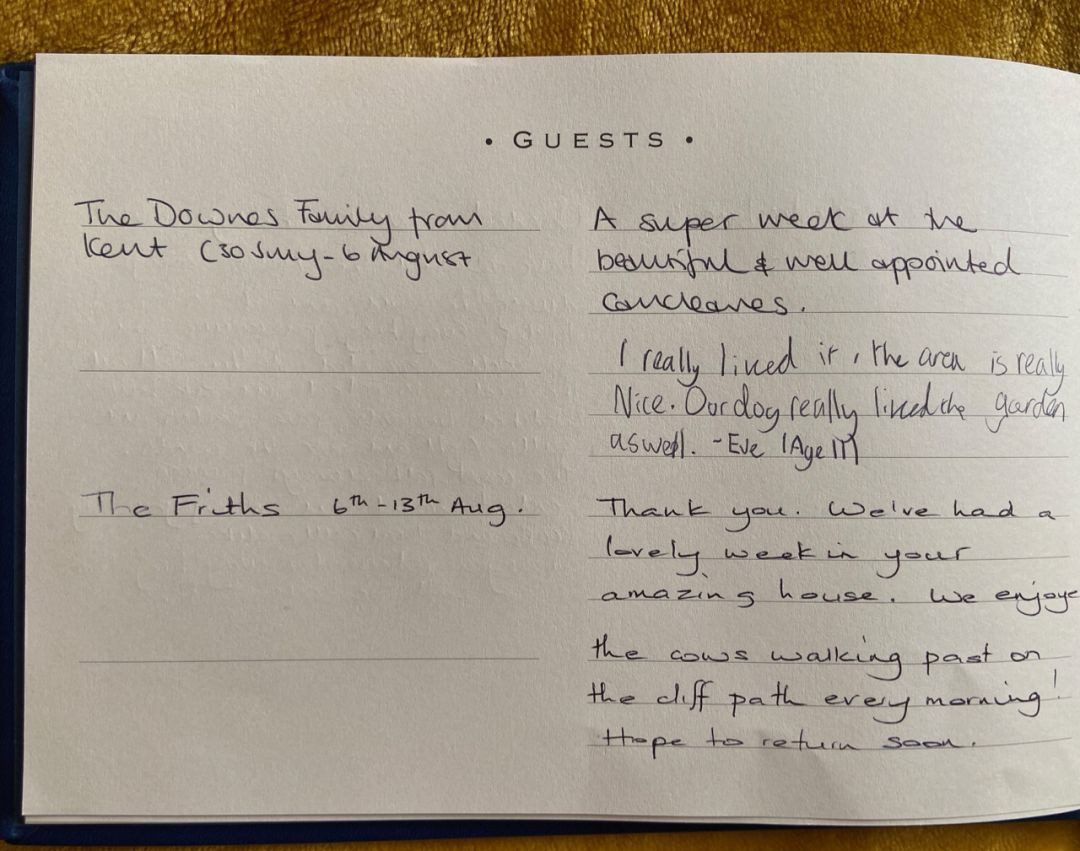 • GUESTS •
The Downes Family from
Kent (30 July - 6 August
A super week at the
beautiful & well appointed
I really liked it, the area is really
Nice. Our dog really liked the garden
aswell. - Eve (Age 11)
The Friths 6th - 13th Aug.
Thank you. We've had a
lovely week in your
amazing house. We enjoye
the cows walking past on
the cliff path every morning!
Hope to return soon.